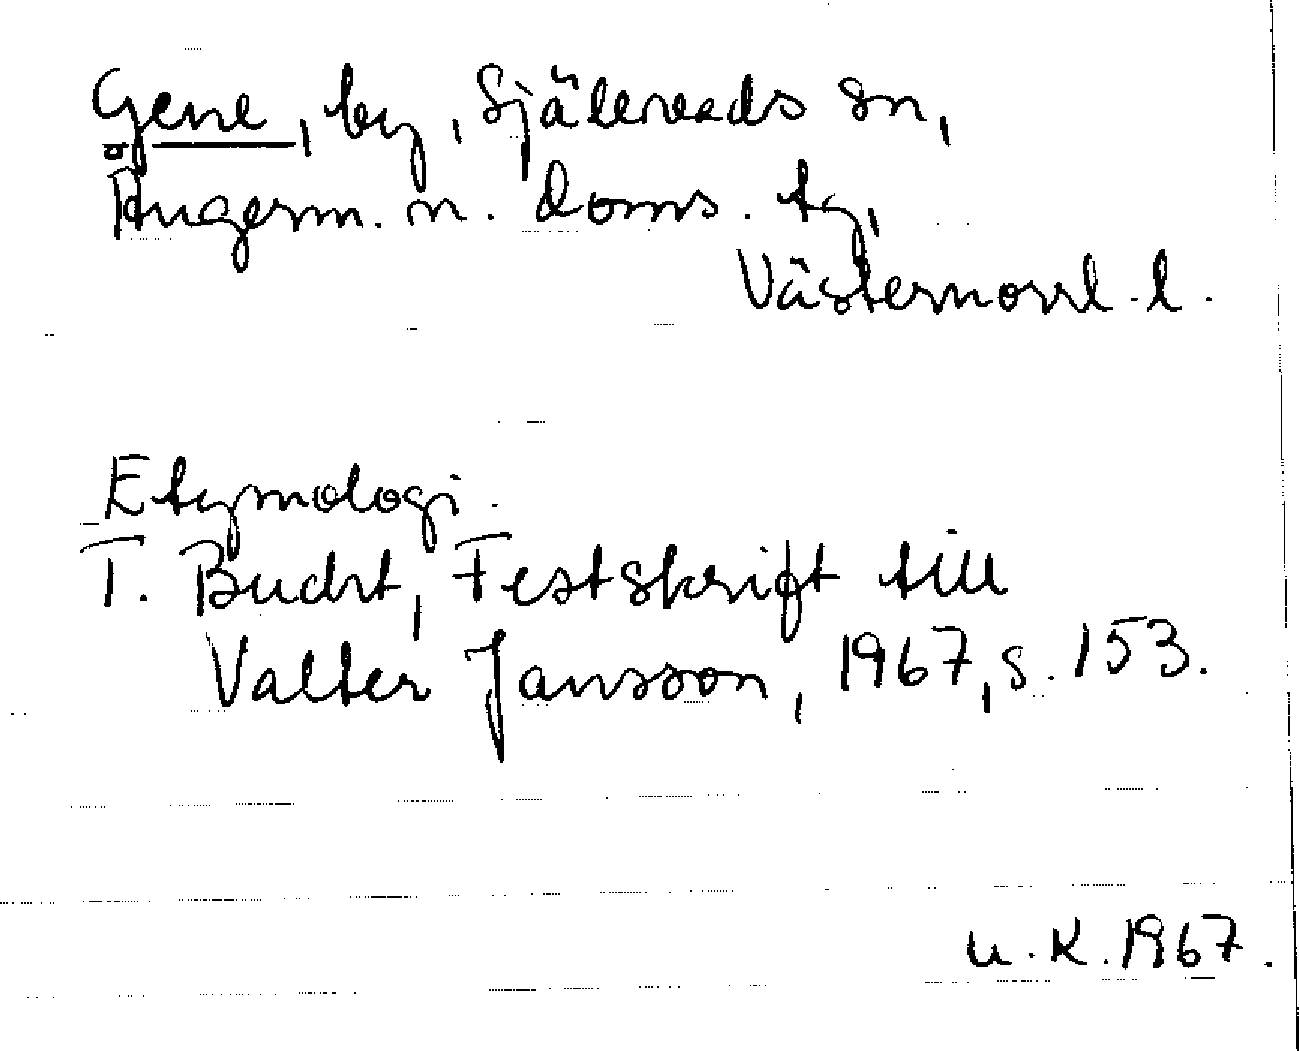 Gene, by, Själevads sn,
Ångerm. n. doms. tg,
Västernorrl. l.
Etymologi.
T. Bucht, Festskrift till
Valter Jansson, 1967, s. 153.
u. K. 1967.